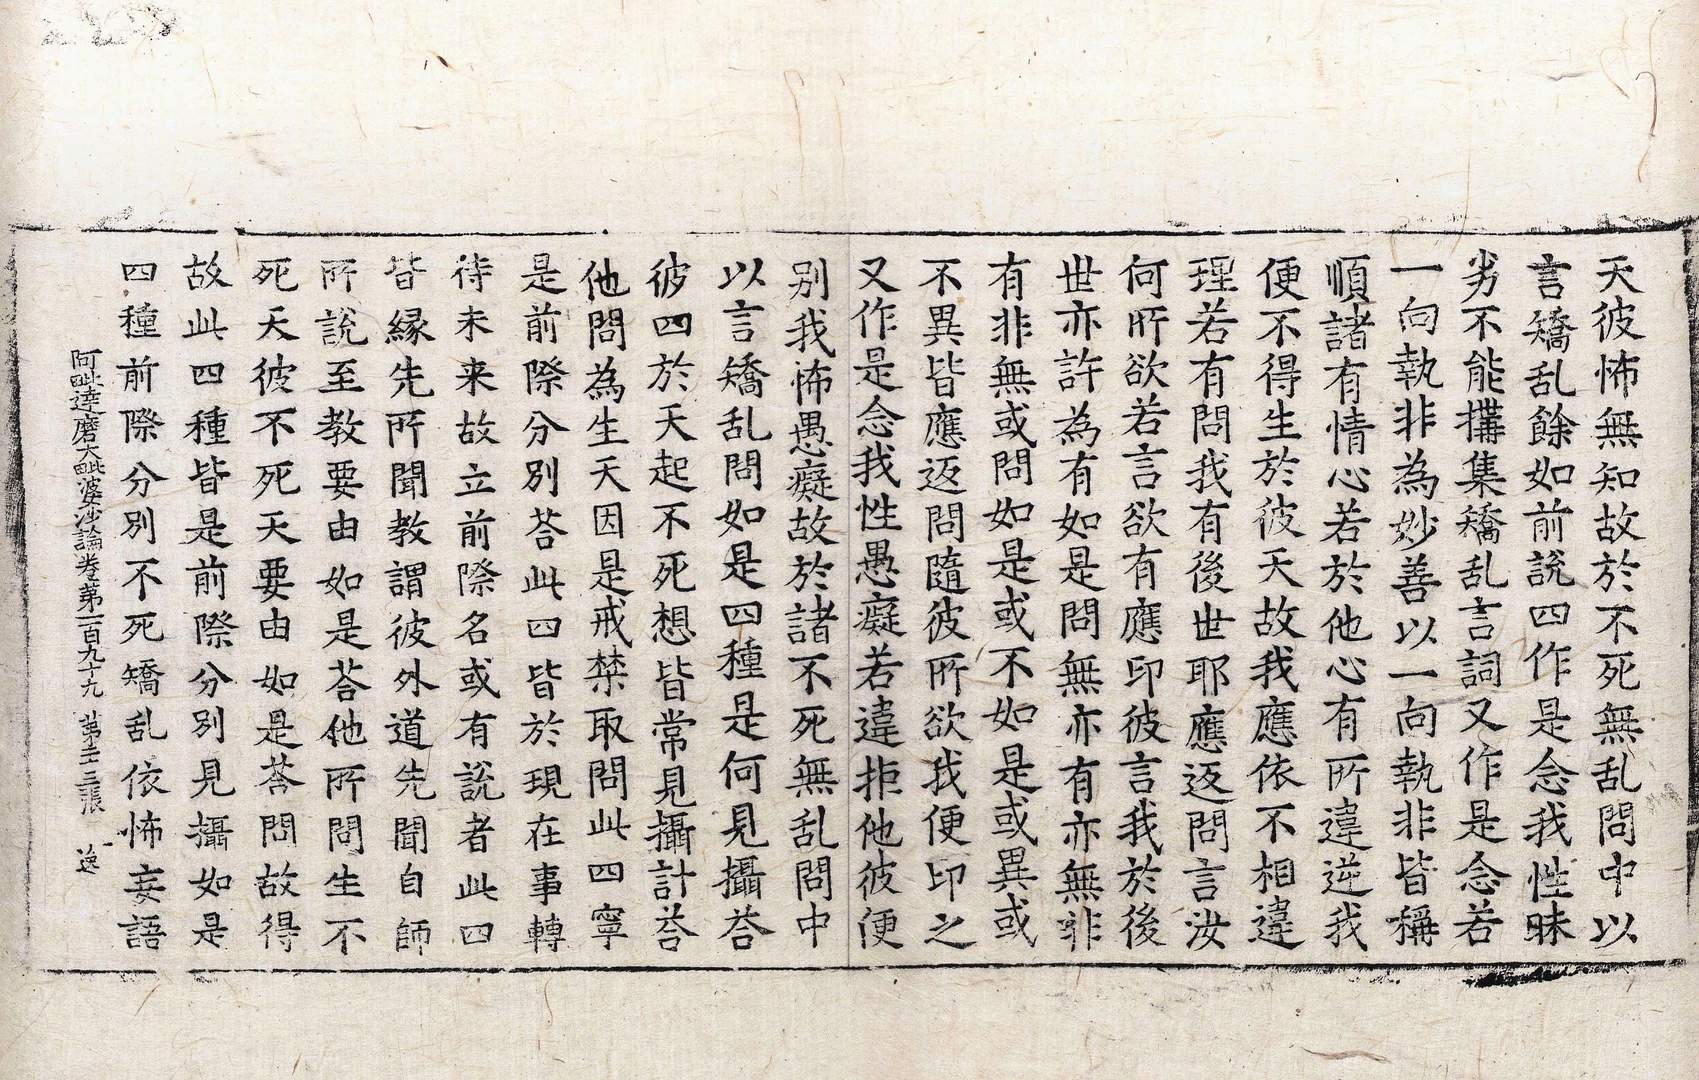 天彼怖無知故於不死無乱問中以
言矯乱餘如前說四作是念我性昧
劣不能搆集矯乱言詞又作是念若
一向執非為妙善以一向執非皆稱
順諸有情心若於他心有所違逆我
便不得生於彼天故我應依不相違
理若有問我有後世耶應返問言汝
何所欲若言欲有應印彼言我於後
世亦許為有如是問無亦有亦無非
有非無或問如是或不如是或異或
不異皆應返問隨彼所欲我便印之
又作是念我性愚癡若違拒他彼便
別我怖愚癡故於諸不死無乱問中
以言矯乱問如是四種是何見攝荅
彼四於天起不死想皆常見攝計荅
他問為生天因是戒禁取問此四寧
是前際分別荅此四皆於現在事轉
待未来故立前際名或有說者此四
皆縁先所聞教謂彼外道先聞自師
所說至教要由如是荅他所問生不
死天彼不死天要由如是荅問故得
故此四種皆是前際分別見攝如是
四種前際分別不死矯乱依怖妄語
阿毗達磨大毗婆沙論卷第一百九十九 第十三張 逸